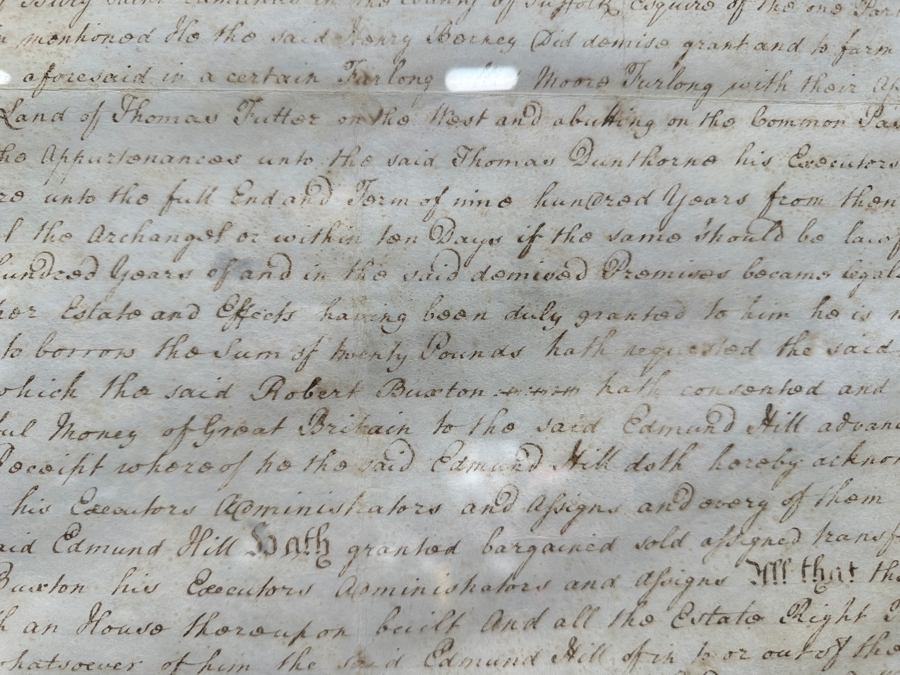 Bury Saint Edmunds in the County of Suffolk Esquire of the one Part
mentioned He the said Henry Berney Did demise grant and to farm
aforesaid in a certain Furlong Moore Furlong with their Ap
Land of Thomas Futter on the West and abutting on the Common Pas
the Appurtenances unto the said Thomas Dunthorne his Executors
re unto the full End and Term of nine hundred Years from then
l the Archangel or within ten Days if the same should be lawf
hundred Years of and in the said demised Premises became legal
her Estate and Effects having been duly granted to him he is n
to borrow the Sum of twenty Pounds hath requested the said
which the said Robert Buxton hath consented and
ful Money of Great Britain to the said Edmund Hill advanc
Receipt whereof he the said Edmund Hill doth hereby acknow
his Executors Administrators and Assigns and every of them
aid Edmund Hill Hath granted bargained sold assigned transf
Buxton his Executors Administrators and Assigns All that the
h an House thereupon built And all the Estate Right T
whatsoever of him the said Edmund Hill of in to or out of the